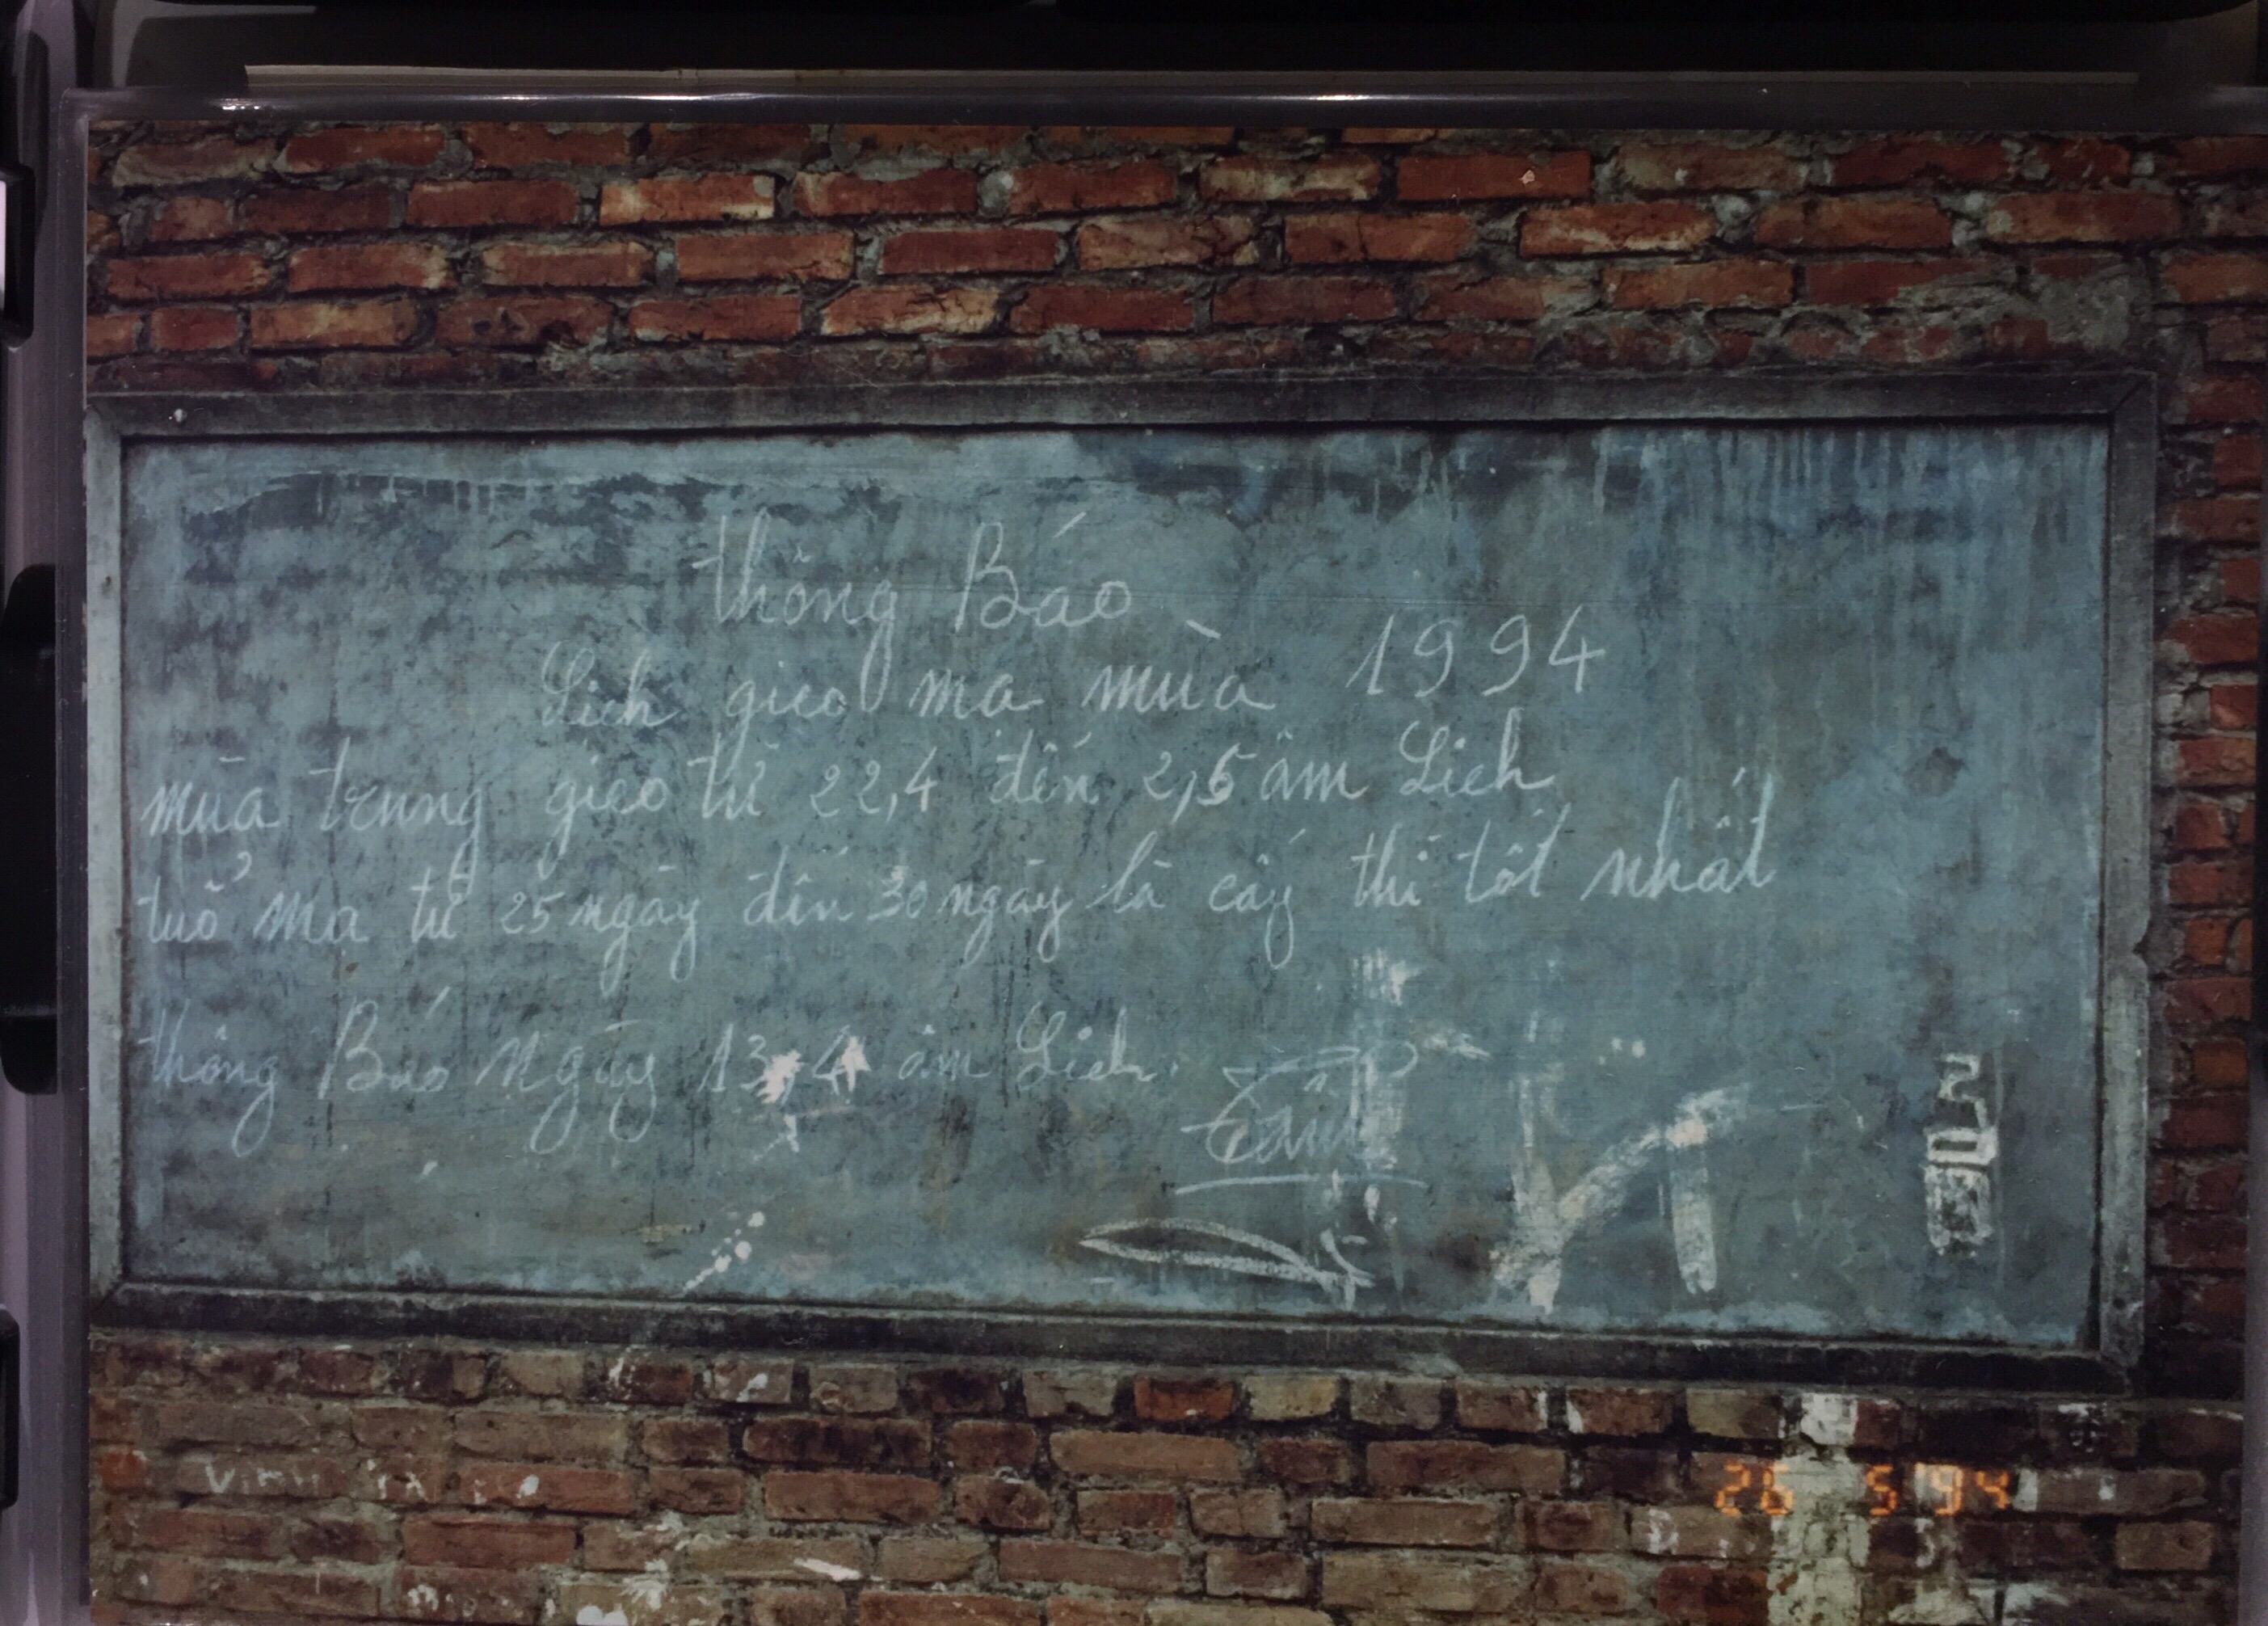 thông Báo
Lich gieo mạ mùa 1994
mùa trung gieo từ 22,4 đến 2,5 âm Lich
tuổ mạ từ 25 ngày đến 30 ngày là cấy thì tốt nhất
thông Báo Ngày 13,4 âm Lich.
26 5 '94